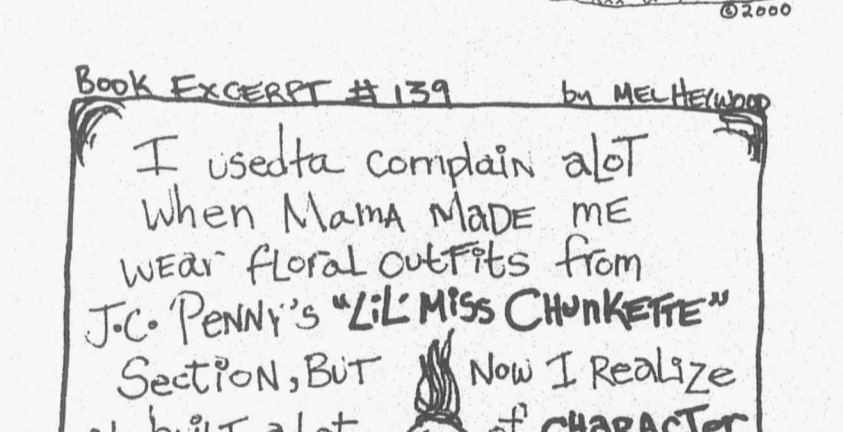 ©2000
BOOK EXCERPT # 139 by MEL HEYWOOD
I usedta complain aLoT
when MamA MaDE mE
WEar fLoraL outFits from
J.C. PENNY'S "LiL' Miss CHunKETTE"
SectioN, BuT Now I ReaLiZe
it built a Lot of CHARACTer